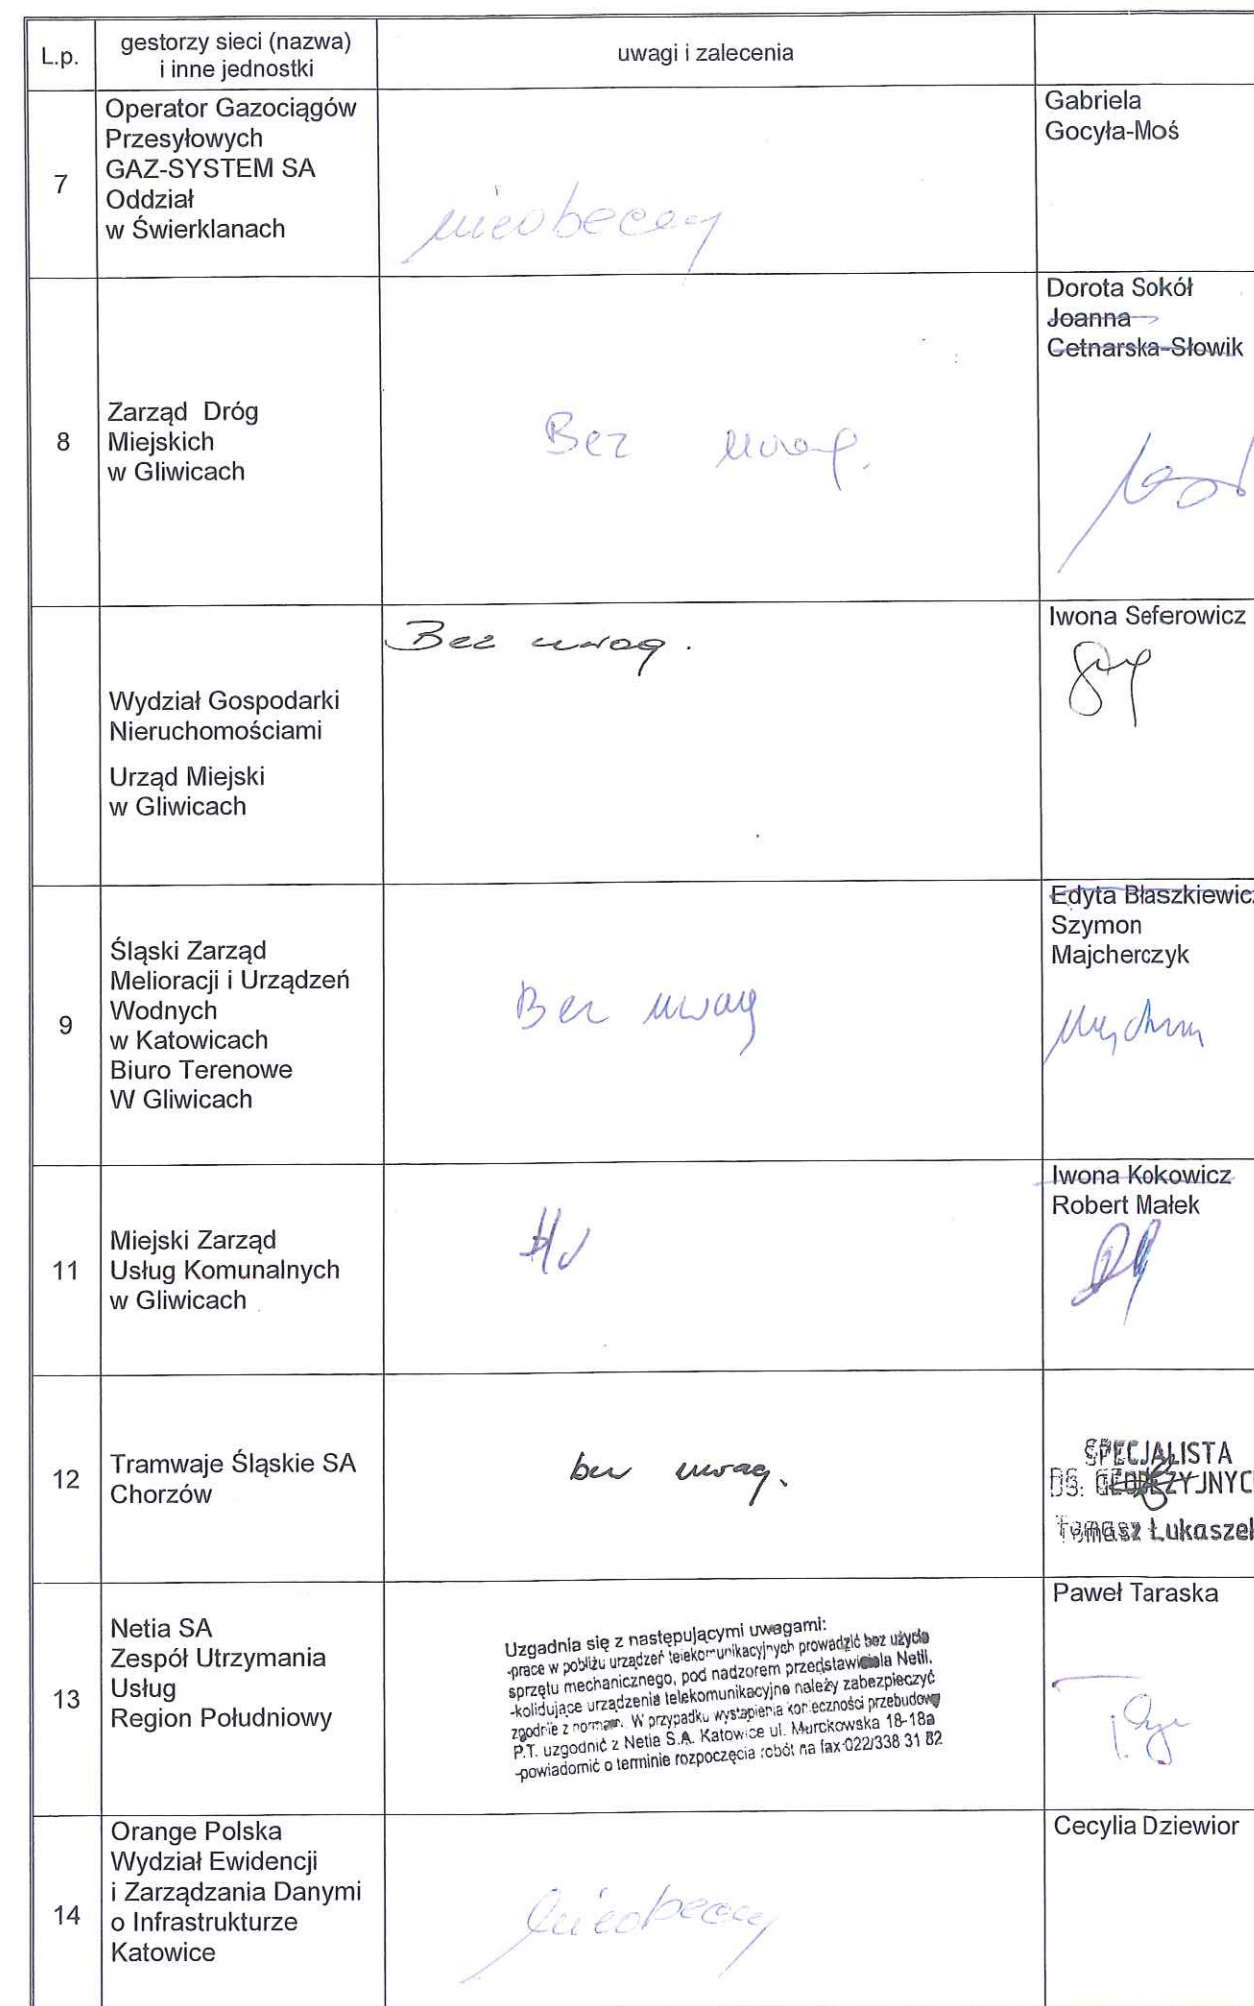 L.p.
gestorzy sieci (nazwa)
i inne jednostki
uwagi i zalecenia
7
Operator Gazociągów
Przesyłowych
GAZ-SYSTEM SA
Oddział
w Świerklanach
nieobecny
Gabriela
Gocyła-Moś
8
Zarząd Dróg
Miejskich
w Gliwicach
Bez uwag.
Dorota Sokół
Joanna
Cetnarska-Słowik
Wydział Gospodarki
Nieruchomościami
Urząd Miejski
w Gliwicach
Bez uwag.
Iwona Seferowicz
9
Śląski Zarząd
Melioracji i Urządzeń
Wodnych
w Katowicach
Biuro Terenowe
W Gliwicach
Bez uwag
Edyta Błaszkiewicz
Szymon
Majcherczyk
11
Miejski Zarząd
Usług Komunalnych
w Gliwicach
Iwona Kokowicz
Robert Małek
12
Tramwaje Śląskie SA
Chorzów
bez uwag.
SPECJALISTA
DS. GEODEZYJNYC
Tomasz Łukaszek
13
Netia SA
Zespół Utrzymania
Usług
Region Południowy
Uzgadnia się z następującymi uwagami:
-prace w pobliżu urządzeń telekomunikacyjnych prowadzić bez użycia
sprzętu mechanicznego, pod nadzorem przedstawiciela Netii,
-kolidujące urządzenia telekomunikacyjne należy zabezpieczyć
zgodnie z normam. W przypadku wystąpienia konieczności przebudowy
P.T. uzgodnić z Netia S.A. Katowice ul. Murckowska 18-18a
-powiadomić o terminie rozpoczęcia robót na fax-022/338 31 82
Paweł Taraska
14
Orange Polska
Wydział Ewidencji
i Zarządzania Danymi
o Infrastrukturze
Katowice
nieobecny
Cecylia Dziewior